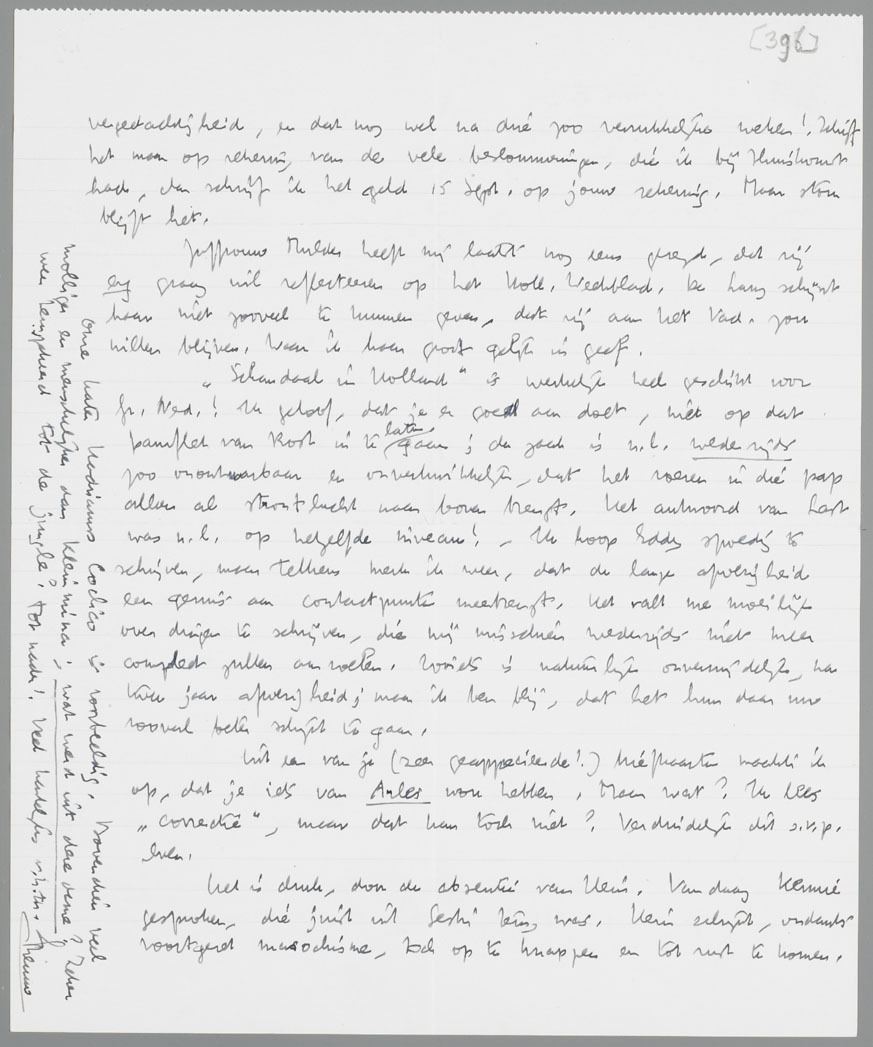 [396]
vergeetachtigheid, en dat nog wel na drie zoo verrukkelijke weken! Schrijf
het maar op rekening van de vele beslommeringen, die ik bij thuiskomst
had, dan schrijf ik het geld 15 Sept. op jouw rekening. Maar stom
blijft het.
Juffrouw Mulder heeft mij laatst nog eens gezegd, dat zij
erg graag wil reflecteeren op het Holl. Weekblad. De Haag schijnt
haar niet zooveel te kunnen geven, dat zij aan het Vad. zou
willen blijven. Waar ik haar groot gelijk in geef.
"Schandaal in Holland" is werkelijk heel geschikt voor
Gr. Ned.! Ik geloof, dat je er goed aan doet, niet op dat
pamflet van Kost in te laten gaan; de zaak is n.l. wederzijds
zoo onontwarbaar en onverkwikkelijk, dat het roeren in die pap
alleen al stront lucht naar boven brengt. Het antwoord van Last
was n.l. op hetzelfde niveau! – Ik hoop Eddy spoedig te
schrijven, maar telkens merk ik weer, dat de lange afwezigheid
een gemis aan contactpunten meebrengt. Het valt me moeilijk
over dingen te schrijven, die mij misschien wederzijds niet meer
compleet zullen aanvoelen. Zooiets is natuurlijk onvermijdelijk, na
twee jaar afwezigheid; maar ik ben blij, dat het hun daar nu
zooveel beter schijnt te gaan.
Uit een van je (zeer geapprecieerde!) briefkaarten maakte ik
op, dat je iets van Arles wou hebben. Maar wat? Ik lees
"correctie", maar dat kan toch niet? Verduidelijk dit s.v.p.
even.
Het is druk, door de absentie van Hein. Vandaag Kennie
gesproken, die juist uit Gestri terug was. Hein schijnt, ondanks
voortgezet masochisme, toch op te knappen en tot rust te komen.
Ome hater Hadrianus Coclico is voorbeeldig. Bovendien veel
molliger en menschelijker dan Klein mina; wat werd uit deze deme? Zeker
weer teruggekeerd tot de jungle? Tot nader! Veel hartelijks v.h.t.h. Menno